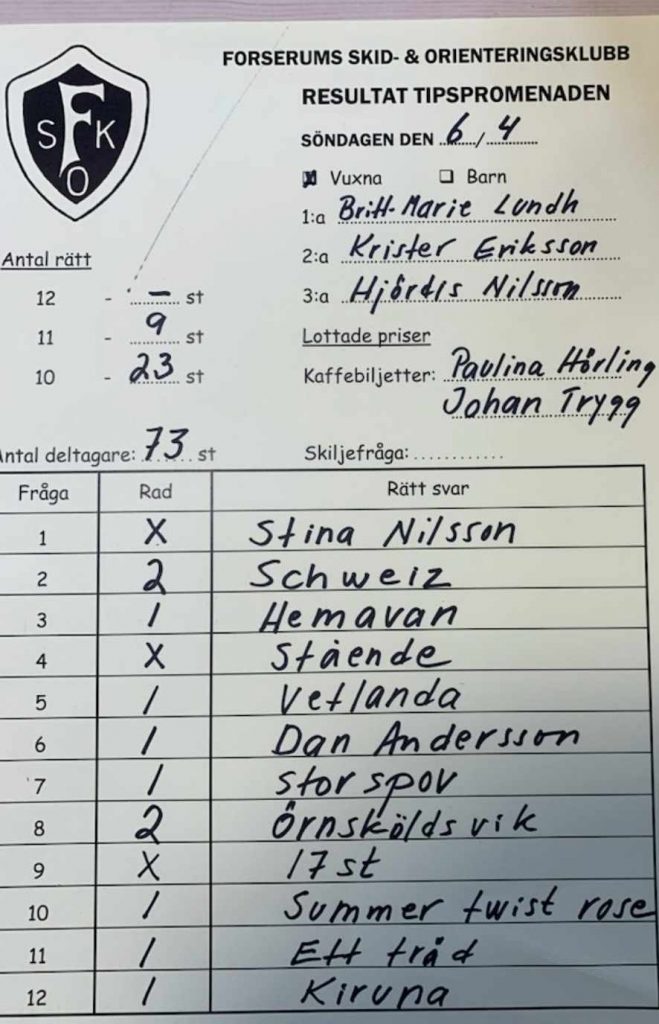 SFKO
FORSERUMS SKID- & ORIENTERINGSKLUBB
RESULTAT TIPSPROMENADEN
SÖNDAGEN DEN 6/4
Vuxna Barn
1:a Britt-Marie Lundh
2:a Krister Eriksson
3:a Hjördis Nilsson
Antal rätt
12 - – st
11 - 9 st
10 - 23 st
Lottade priser
Kaffebiljetter: Paulina Hörling
Johan Trygg
Antal deltagare: 73 st
Skiljefråga:............
Fråga Rad Rätt svar
1 X Stina Nilsson
2 2 Schweiz
3 1 Hemavan
4 X Stående
5 1 Vetlanda
6 1 Dan Andersson
7 1 storspov
8 2 Örnsköldsvik
9 X 17 st
10 1 Summer twist rose
11 1 Ett träd
12 1 Kiruna